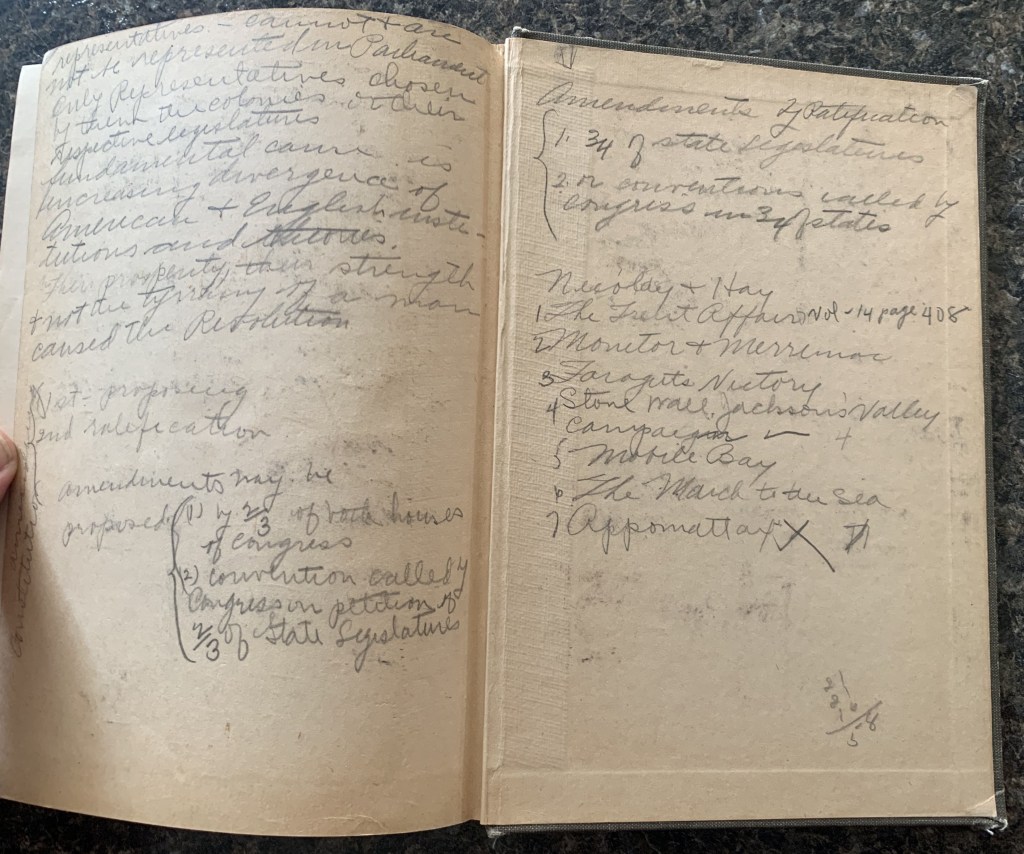 representatives. - cannot & are
not be represented in Parliament
Only Representatives chosen
by them the colonies in their
respective legislatures
fundamental cause is
increasing divergence of
American + English insti-
tutions and theories.
Their prosperity, their strength
+ not the tyranny of a man
caused the Revolution
1st - proposing
2nd ratification
amendments may be
proposed (1) by 2/3 of both houses
of Congress
(2) convention called by
Congress on petition of
2/3 of State Legislatures
Constitution
Amendments Ratification
1. 3/4 of state legislatures
2. or conventions called by
Congress in 3/4 of states
Nicolay + Hay
1 The Trent Affair Vol - 14 page 408
2 Monitor + Merrimac
3 Faraguts Victory
4 Stone Wall Jackson's Valley
Campaign
5 Mobile Bay
6 The March to the Sea
7 Appomattax